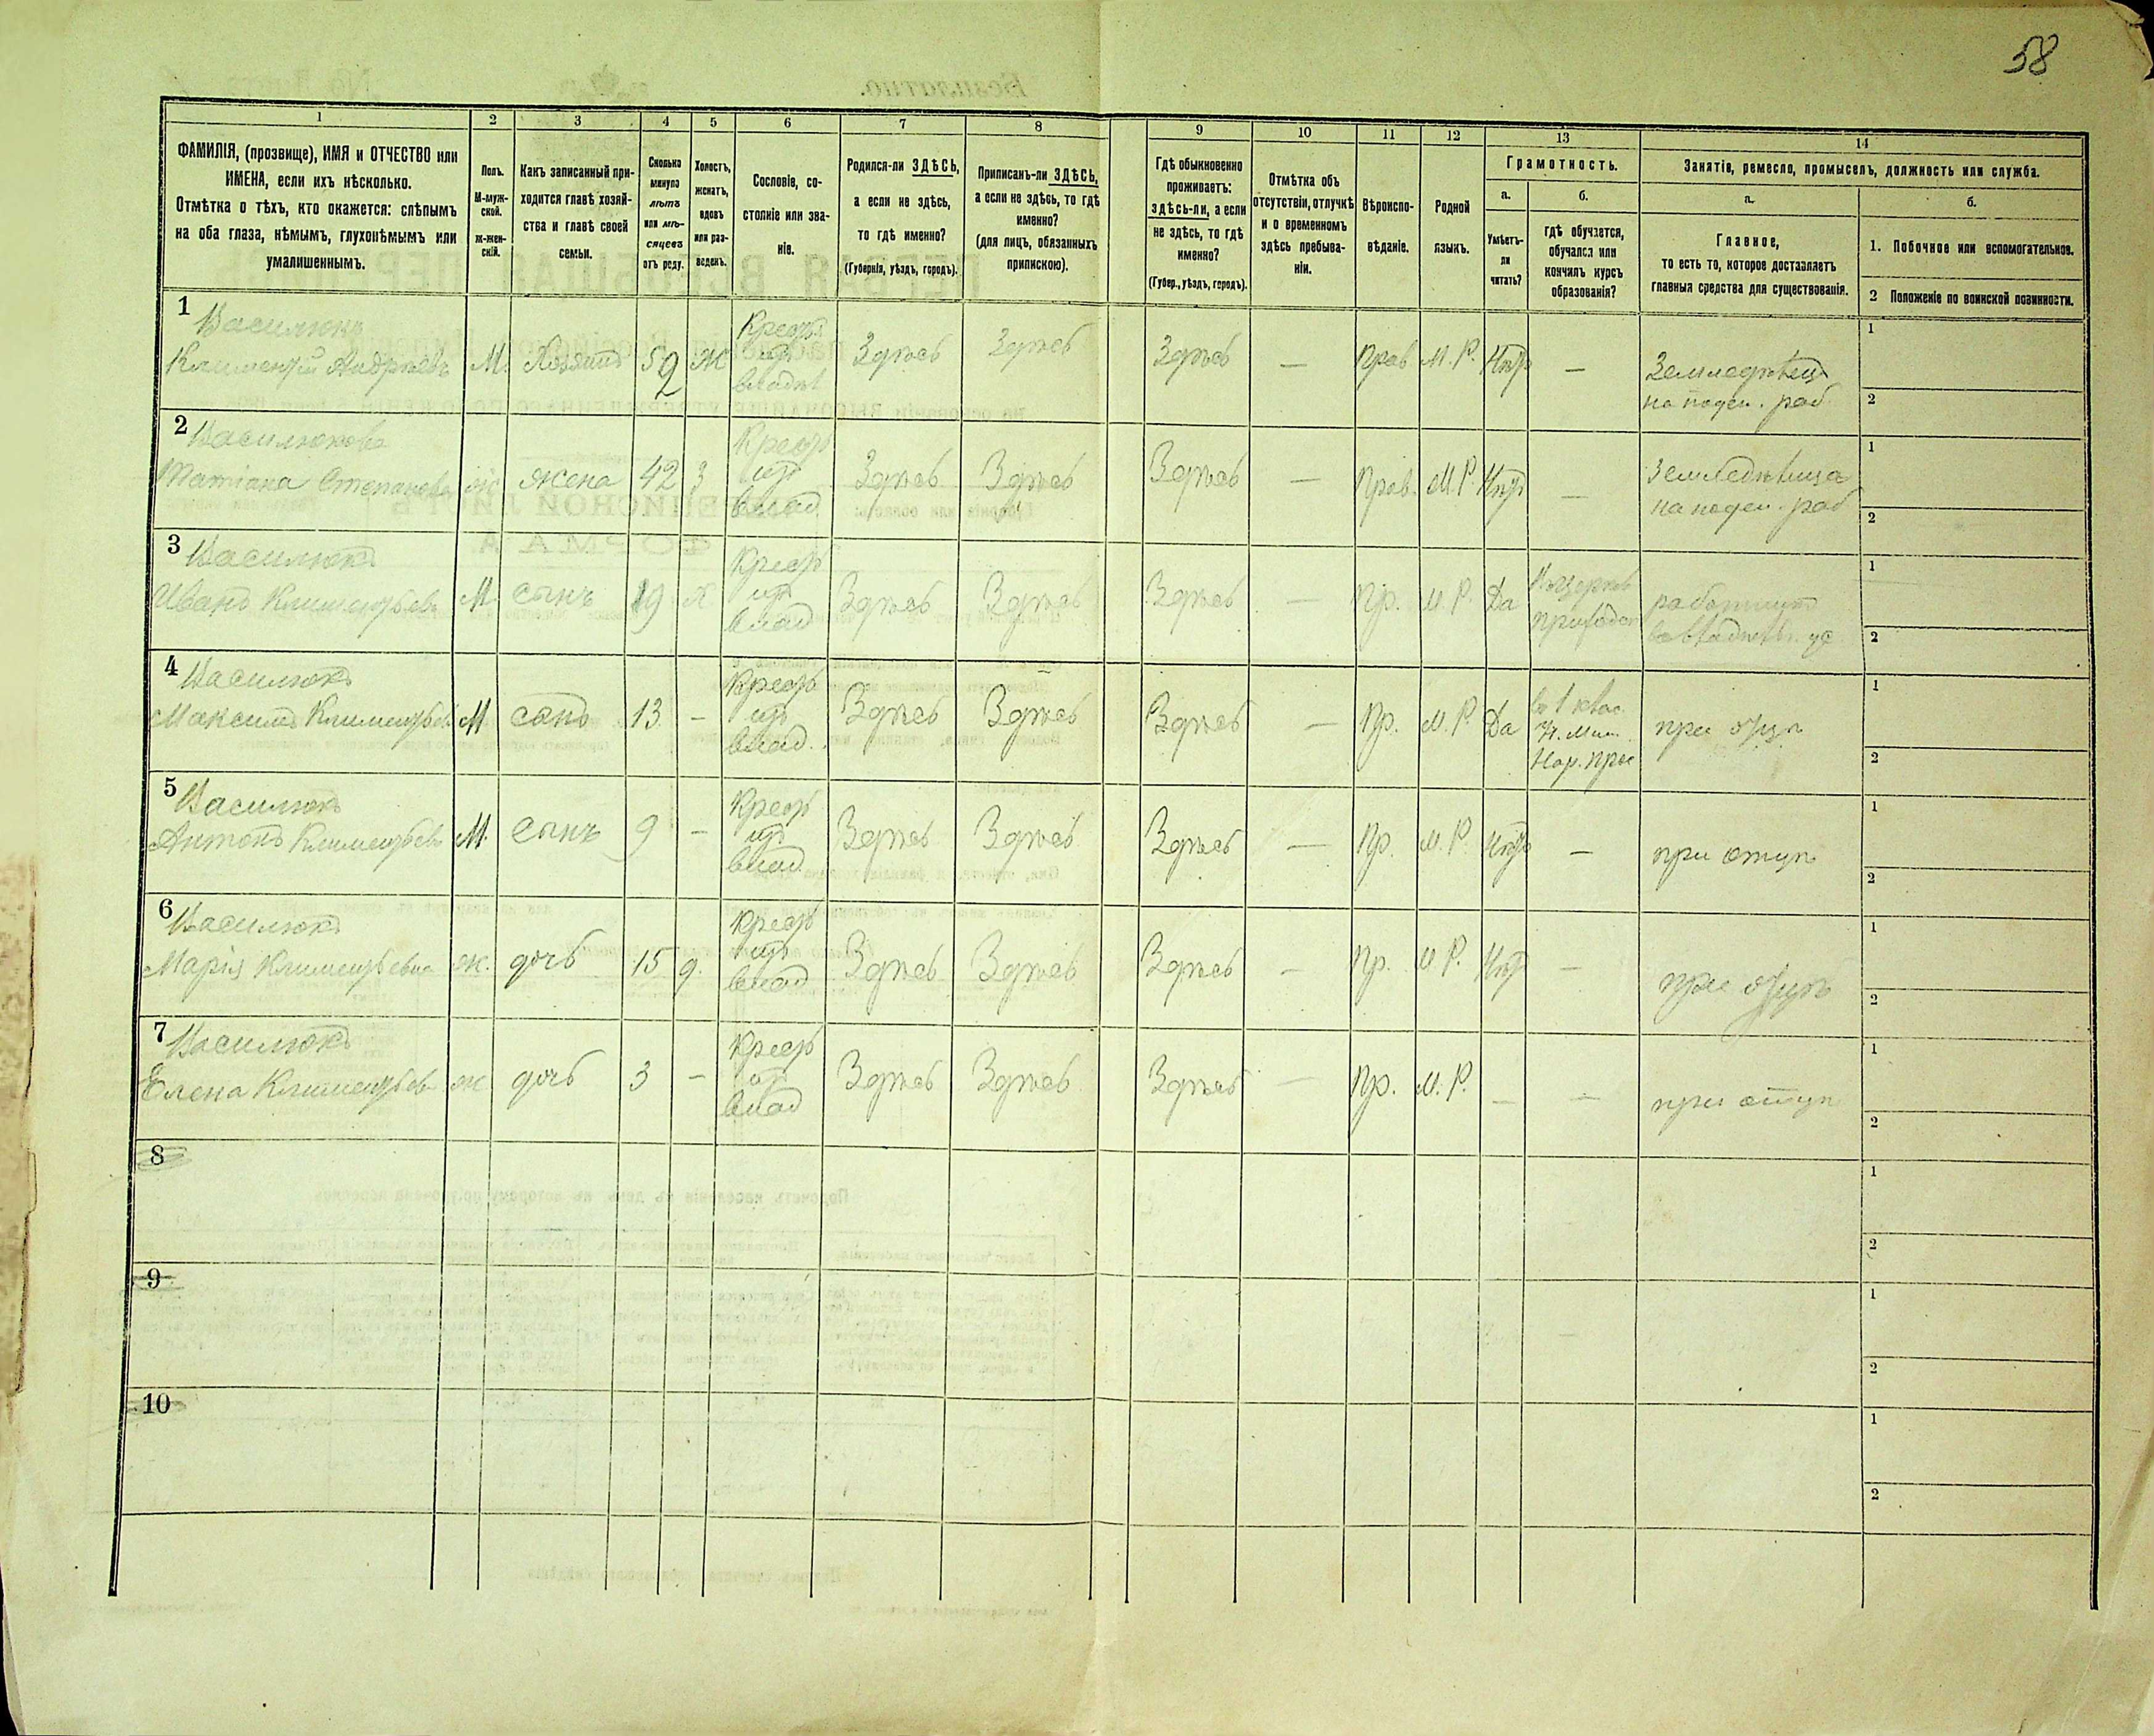 58
1 2 3 4 5 6 7 8 9 10 11 12 13 14
ФАМИЛІЯ, (прозвище), ИМЯ и ОТЧЕСТВО или
ИМЕНА, если ихъ нѣсколько.
Отмѣтка о тѣхъ, кто окажется: слѣпымъ
на оба глаза, нѣмымъ, глухонѣмымъ или
умалишеннымъ.
Полъ.
М-муж-
ской.
ж-жен-
скій.
Какъ записанный при-
ходится главѣ хозяй-
ства и главѣ своей
семьи.
Сколько
минуло
лѣтъ
или мѣ-
сяцевъ
отъ роду.
Холостъ,
женатъ,
вдовъ
или раз-
веденъ.
Сословіе, со-
стояніе или зва-
ніе.
Родился-ли ЗДѢСЬ,
а если не здѣсь,
то гдѣ именно?
(Губернія, уѣздъ, городъ).
Приписанъ-ли ЗДѢСЬ,
а если не здѣсь, то гдѣ
именно?
(для лицъ, обязанныхъ
припискою).
Гдѣ обыкновенно
проживаетъ:
здѣсь-ли, а если
не здѣсь, то гдѣ
именно?
(Губер., уѣздъ, городъ).
Отмѣтка объ
отсутствіи, отлучкѣ
и о временномъ
здѣсь пребыва-
ніи.
Вѣроиспо-
вѣданіе.
Родной
языкъ.
Грамотность.
а.
Умѣетъ-
ли
читать?
б.
гдѣ обучается,
обучался или
кончилъ курсъ
образованія?
Занятіе, ремесло, промыселъ, должность или служба.
а.
Главное,
то есть то, которое доставляетъ
главныя средства для существованія.
б.
1. Побочное или вспомогательное.
2 Положеніе по воинской повинности.
1
Василюкъ
Климентій Андреевъ М. Хозяинъ 52 Ж Здѣсь Здѣсь Здѣсь — Прав М.Р. Нѣтъ — Земледѣлецъ
на поден. раб.
1
2
2
Василюкова
Татіана Степанова ж жена 42 З Здѣсь Здѣсь Здѣсь — Прав. М.Р. Нѣтъ — Земледѣлица
на поден. раб
1
2
3
Василюкъ
Иванъ Климентьев М. сынъ 19 Х. Здѣсь Здѣсь Здѣсь — Пр. М.Р. Да
1
2
4
Василюкъ
Максимъ Климентьев М сынъ 13 — Здѣсь Здѣсь Здѣсь — Пр. М.Р. Да
Нар. Прос
при отцѣ
1
2
5
Василюкъ
Антонъ Климентьев М. сынъ 9 — Здѣсь Здѣсь Здѣсь — Пр. М.Р. Нѣтъ — при отцѣ
1
2
6
Василюкъ
Марія Климентьевна ж. дочь 15 д. Здѣсь Здѣсь Здѣсь — Пр. М.Р. Нѣт — при отцѣ
1
2
7
Василюкъ
Елена Климентьев ж дочь 3 — Здѣсь Здѣсь Здѣсь — Пр. М.Р. — — при отцѣ
1
2
8
1
2
9
1
2
10
1
2